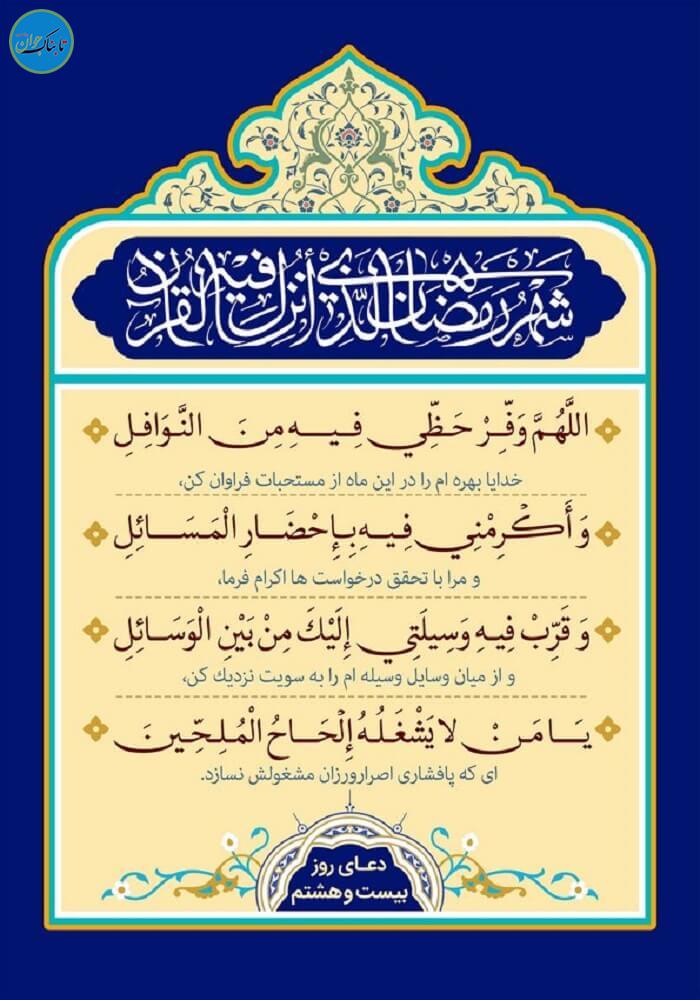 تابناک جوان
شَهْرُ رَمَضَانَ الَّذِي أُنْزِلَ فِيهِ الْقُرْآنُ
اللَّهُمَّ وَفِّرْ حَظِّي فِيهِ مِنَ النَّوَافِلِ
خدایا بهره ام را در این ماه از مستحبات فراوان کن،
وَ أَكْرِمْنِي فِيهِ بِإِحْضَارِ الْمَسَائِلِ
و مرا با تحقق درخواست ها اکرام فرما،
وَ قَرِّبْ فِيهِ وَسِيلَتِي إِلَيْكَ مِنْ بَيْنِ الْوَسَائِلِ
و از میان وسایل وسیله ام را به سویت نزدیك کن،
يَا مَنْ لا يَشْغَلُهُ إِلْحَاحُ الْمُلِحِّينَ
ای که پافشاری اصرارورزان مشغولش نسازد.
دعای روز
بیست و هشتم